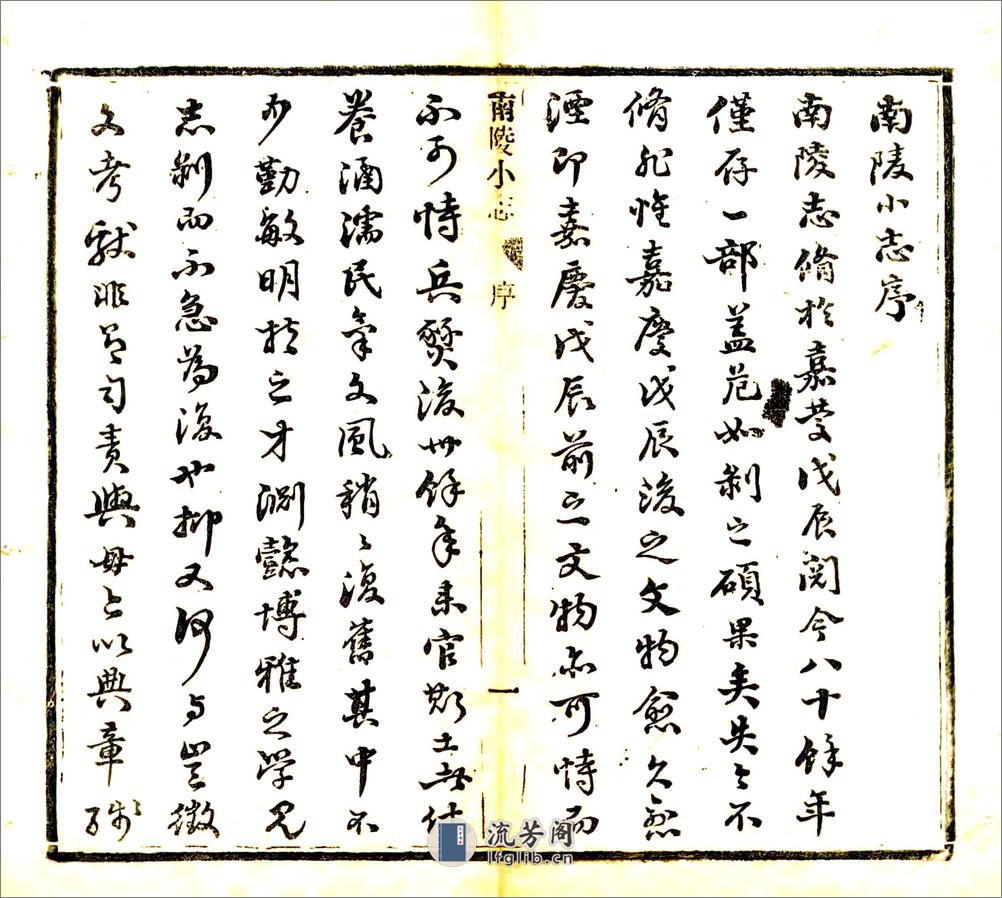 南陵小志序
南陵志脩於嘉慶戊辰閱今八十餘年
僅存一部蓋如剝之碩果矣失今不
脩非惟嘉慶戊辰後之文物愈久愈
湮即嘉慶戊辰前之文物亦可恃而
南陵小志 序 一
不可恃兵燹後卅餘年來官斯土者休
養涵濡民氣文風稍〻復舊其中不
少勤敏明之才淵懿博雅之學見
志剝而不急為復也抑又何與豈徵
文考獻非有司責與毋亦以典章殘
流芳阁
lfglib.cn